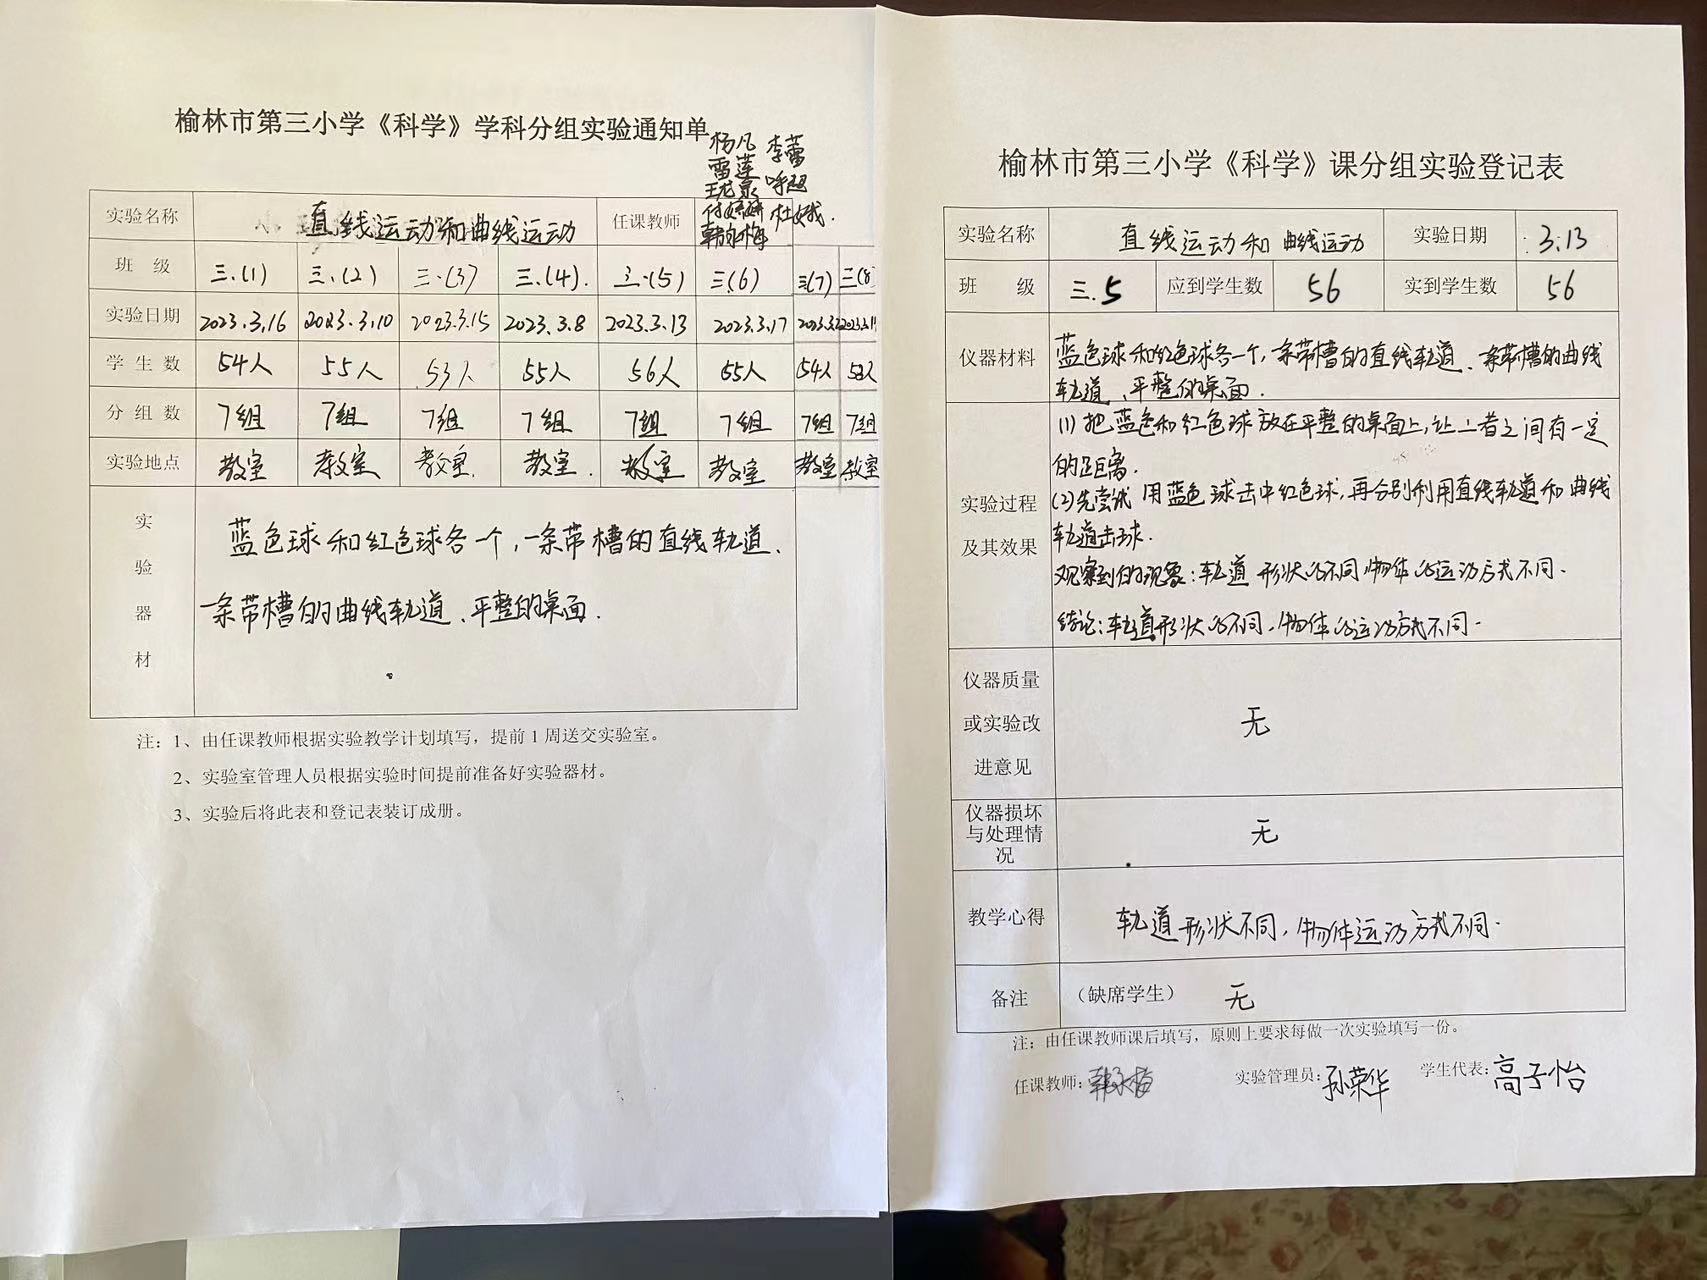 榆林市第三小学《科学》学科分组实验通知单
杨凡 李蕾
雷莲
呼双
杜娥.
韩永梅
实验名称 直线运动和曲线运动 任课教师
班 级 三.(1) 三.(2) 三.(3) 三.(4). 三.(5) 三(6) 三(7) 三(8)
实验日期 2023.3.16 2023.3.10 2023.3.15 2023.3.8 2023.3.13 2023.3.17
学 生 数 54人 55人 53人 55人 56人 55人 54人 53人
分 组 数 7组 7组 7组 7组 7组 7组 7组 7组
实验地点 教室 教室 教室. 教室. 教室 教室 教室 教室
实验器材
蓝色球和红色球各一个,一条带槽的直线轨道、
一条带槽的曲线轨道、平整的桌面.
注：1、由任课教师根据实验教学计划填写，提前1周送交实验室。
2、实验室管理人员根据实验时间提前准备好实验器材。
3、实验后将此表和登记表装订成册。
榆林市第三小学《科学》课分组实验登记表
实验名称 直线运动和曲线运动 实验日期 3.13
班 级 三.5 应到学生数 56 实到学生数 56
仪器材料 蓝色球和红色球各一个,一条带槽的直线轨道、一条带槽的曲线
轨道、平整的桌面.
实验过程及其效果
(1)把蓝色和红色球放在平整的桌面上,让二者之间有一定
的距离.
(2)先尝试用蓝色球击中红色球,再分别利用直线轨道和曲线
轨道击球.
观察到的现象:轨道形状的不同,物体的运动方式不同.
结论:轨道形状的不同,物体的运动方式不同.
仪器质量
或实验改 无
进意见
仪器损坏
与处理情 无
况
教学心得 轨道形状不同,物体运动方式不同.
备注 （缺席学生） 无
注：由任课教师课后填写，原则上要求每做一次实验填写一份。
任课教师:韩永梅 实验管理员:孙荣华 学生代表:高子怡